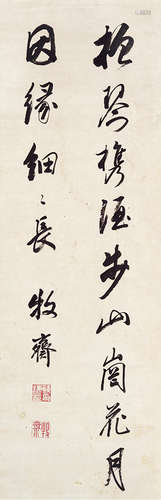 抱琴携酒步山崗花月
因緣細〻長 牧齋